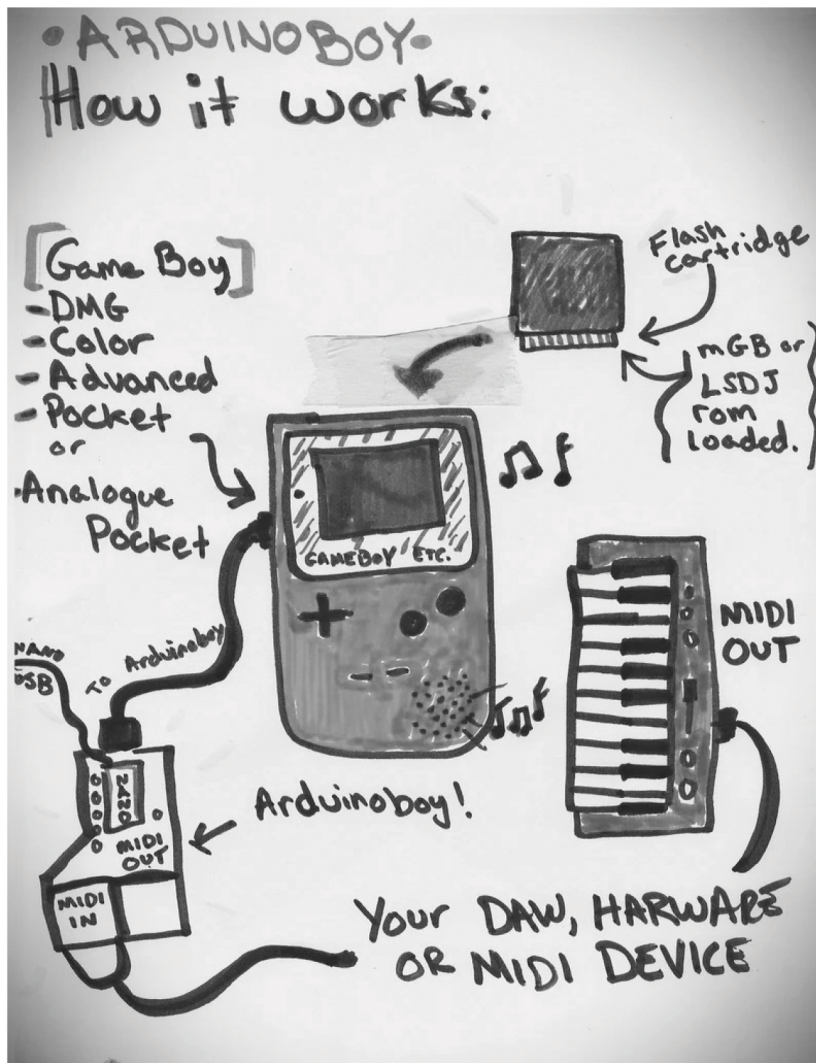 • ARDUINOBOY •
How it works:
[Game Boy]
- DMG
- Color
- Advanced
- Pocket
or
• Analogue
Pocket
Flash
cartridge
mGB or
LSDJ
rom
loaded.
GAMEBOY ETC.
MIDI
OUT
NANO
USB
TO Arduinoboy
Arduinoboy!
MIDI
OUT
MIDI
IN
Your DAW, HARWARE
OR MIDI DEVICE